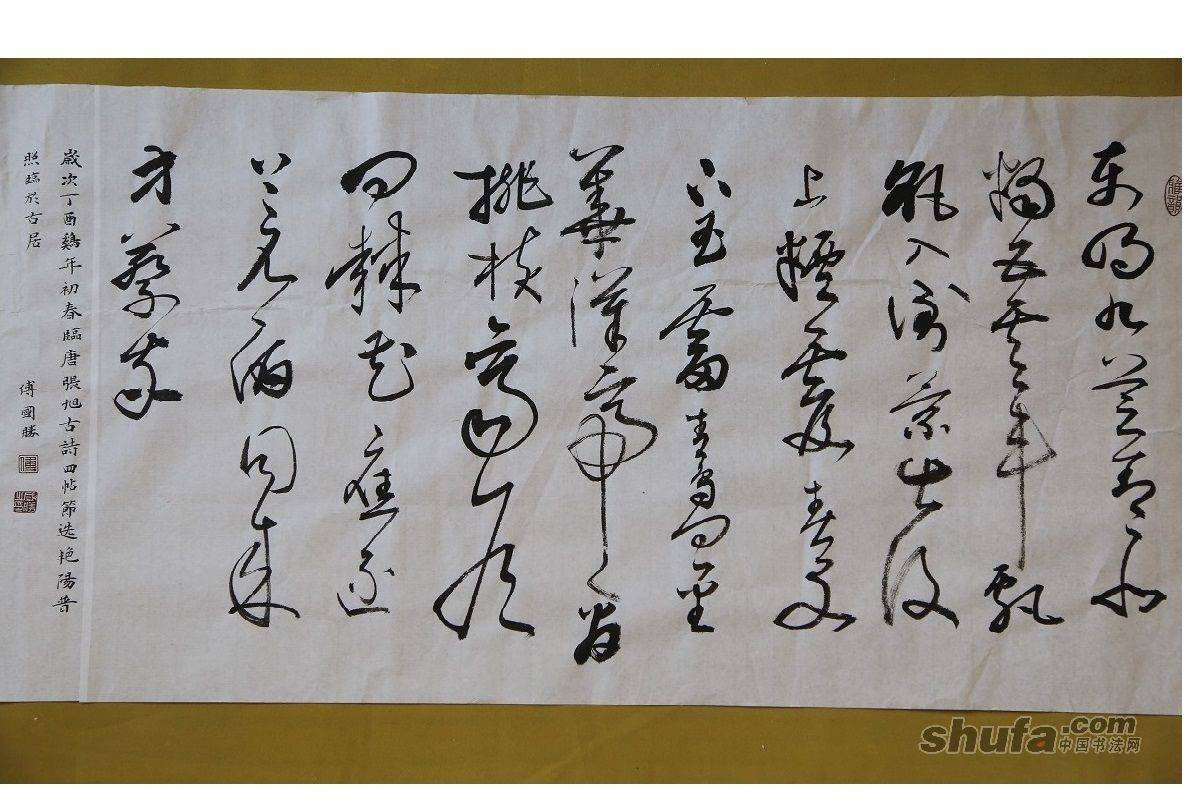 東明九芝蓋北
燭五雲車飄
飖入倒景出沒
上煙霞春泉
下玉霤青鳥向金
華漢帝看
桃核齊侯
問棘花應逐
上元酒同來
訪蔡家
歲次丁酉鷄年初春臨唐張旭古詩四帖節选艳陽普
照臨於古居 傅國勝
shufa.com
中国书法网